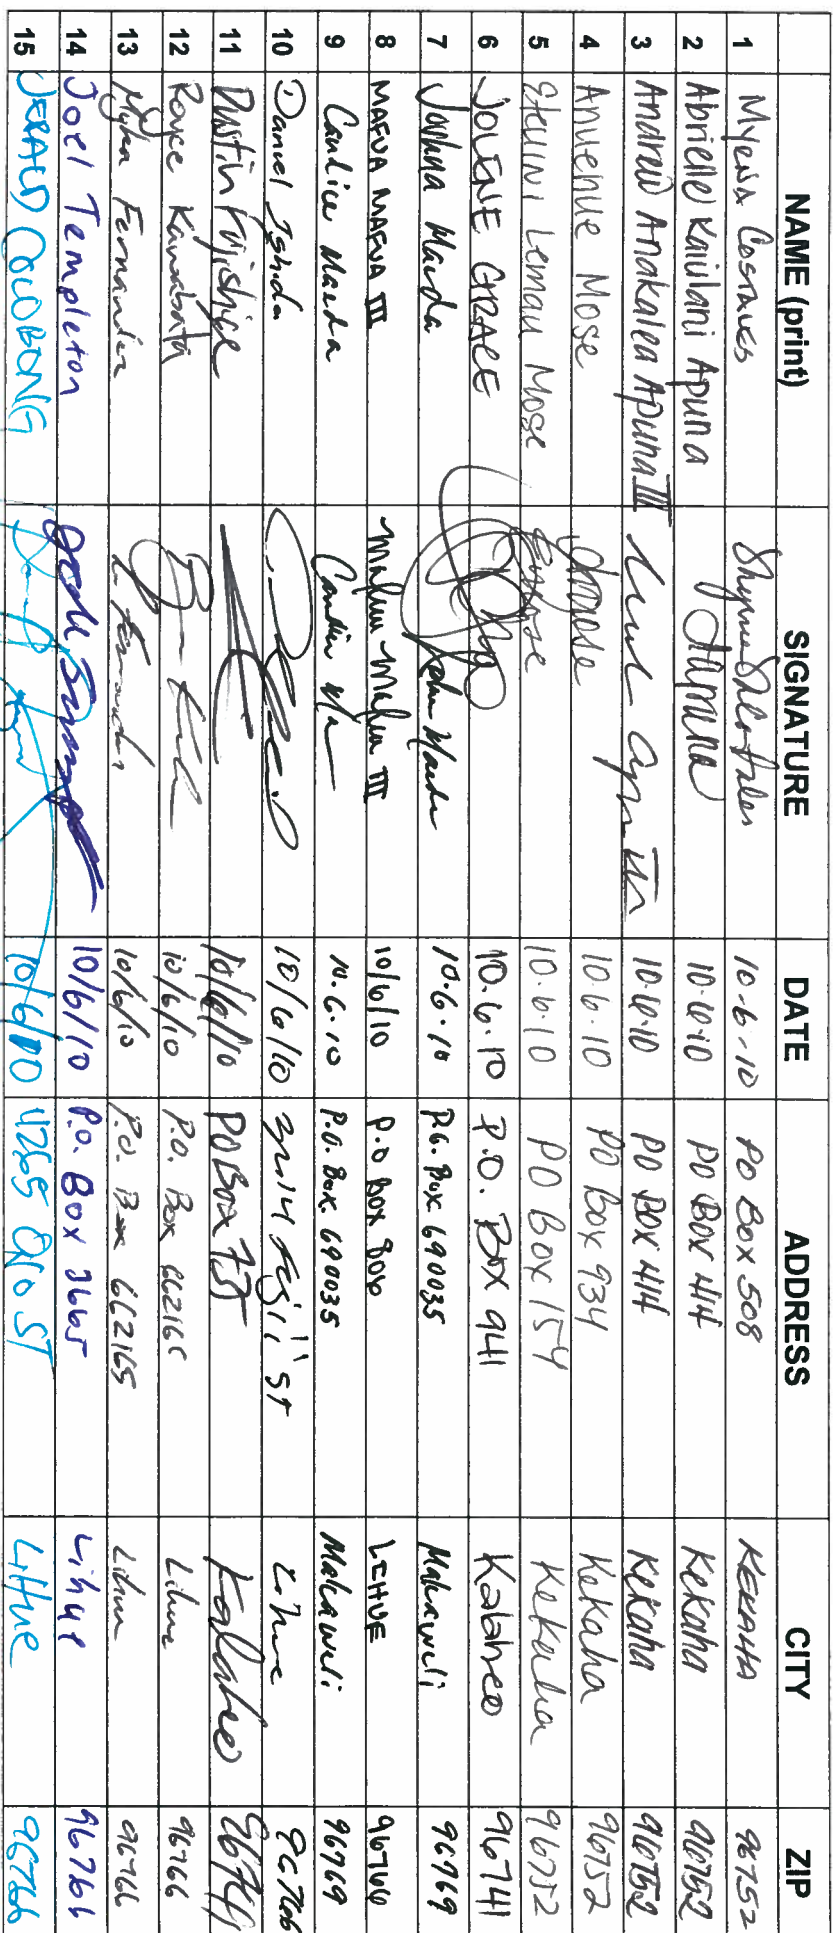 NAME (print) SIGNATURE DATE ADDRESS CITY ZIP
1 Myena 10-6-10 PO Box 508 KEKAHA 96752
2 Abrielle Kaiulani Apuna AApuna 10.6.10 PO BOX 414 Kekaha 96752
3 Andrew Anakalea Apuna III 10.6.10 PO BOX 414 Kekaha 96752
4 Anuenue Mose AMose 10.6.10 PO Box 934 Kekaha 96752
5 Leman Mose 10.6.10 PO Box 154 Kekaha 96752
6 JOLENE GRACE 10.6.10 P.O. BOX 941 Kalaheo 96741
7 Joshua Maeda 10.6.10 P.O. Box 690035 Makaweli 96769
8 MAFUA MAFUA III Mafua Mafua III 10/6/10 P.O Box 806 LIHUE 96766
9 Candice Maeda 10.6.10 P.O. Box 690035 Makaweli 96769
10 Daniel Ishida 10/6/10 Fujii st Lihue 96766
11 Dustin Fujishige 10/6/10 PO Box Kalaheo 96741
12 Royce Kawabata 10/6/10 P.O. Box Lihue 96766
13 Myka Fernandez 10/6/10 P.O. Box 662165 Lihue 96766
14 Joel Templeton 10/6/10 P.O. Box 3665 Lihue 96766
15 JERALD COLOBONG 10/6/10 4265 ST LiHue 96766